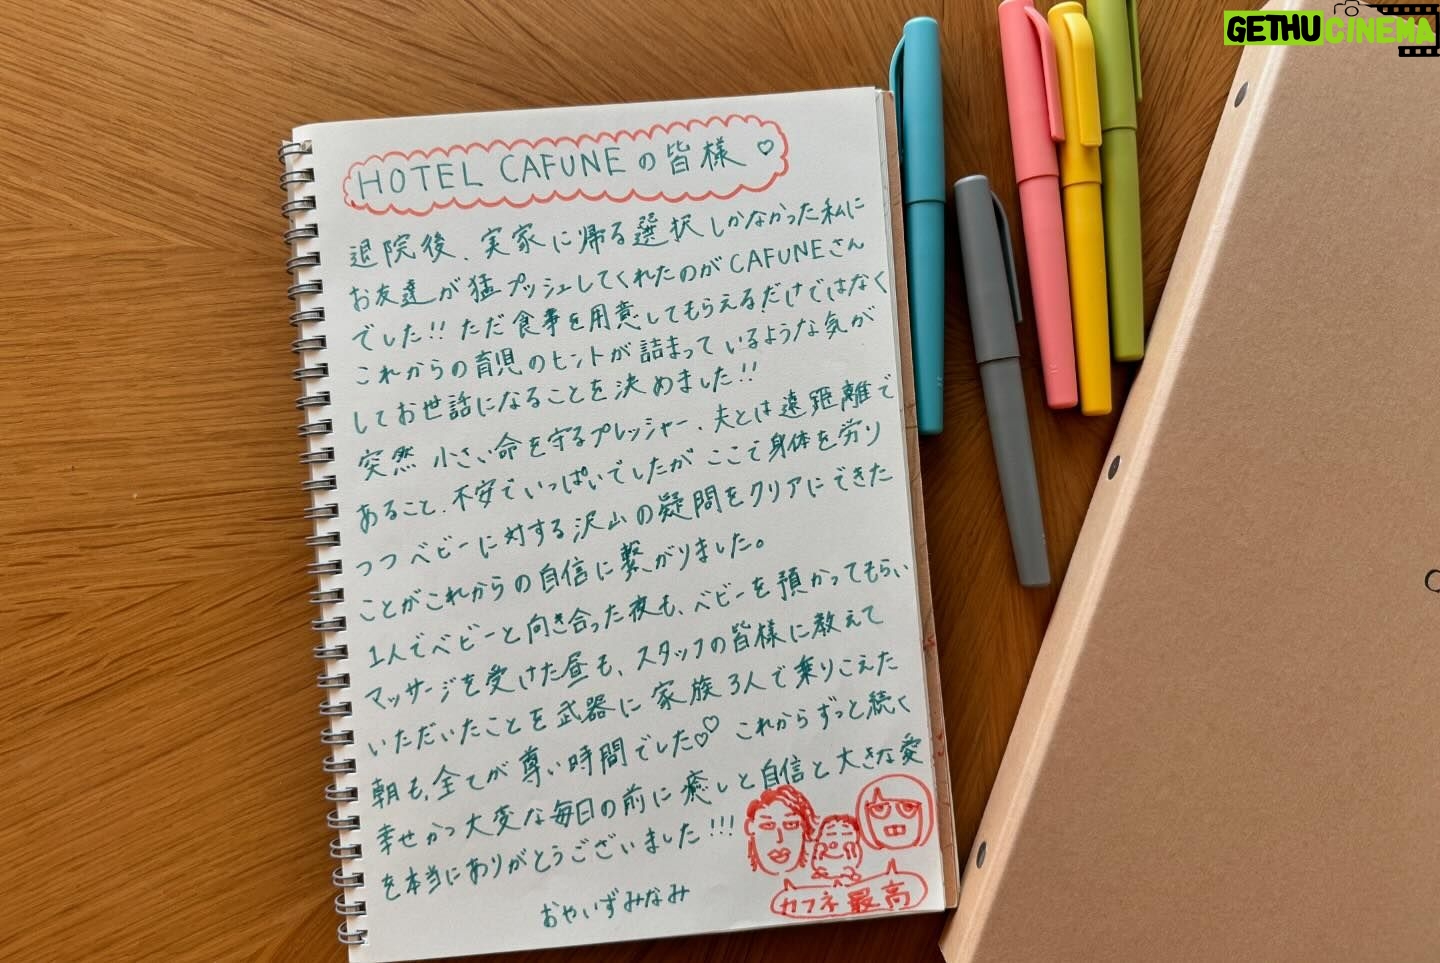 GETHUCINEMA
HOTEL CAFUNEの皆様♡
退院後、実家に帰る選択しかなかった私に
お友達が猛プッシュしてくれたのがCAFUNEさん
でした!! ただ食事を用意してもらえるだけではなく
これからの育児のヒントが詰まっているような気が
してお世話になることを決めました!!
突然 小さい命を守るプレッシャー、夫とは遠距離で
あること、不安でいっぱいでしたがここで身体を労り
つつベビーに対する沢山の疑問をクリアにできた
ことがこれからの自信に繋がりました。
1人でベビーと向き合った夜も、ベビーを預かってもらい
マッサージを受けた昼も、スタッフの皆様に教えて
いただいたことを武器に家族3人で乗りこえた
朝も、全てが尊い時間でした♡♡ これからずっと続く
幸せかつ大変な毎日の前に癒しと自信と大きな愛
を本当にありがとうございました!!!
おやいずみなみ
カフネ最高